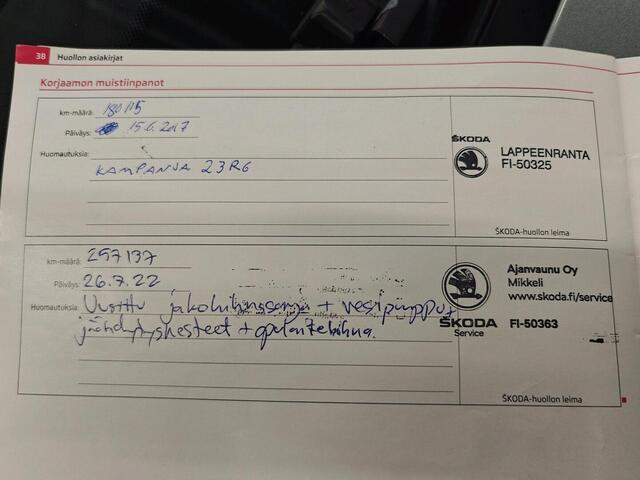 38 Huollon asiakirjat
Korjaamon muistiinpanot
km-määrä: 180115
Päiväys: 15.6.2017
Huomautuksia:
KAMPANJA 23R6
ŠKODA
LAPPEENRANTA
FI-50325
ŠKODA-huollon leima
km-määrä: 297137
Päiväys: 26.7.22
Huomautuksia: Uusittu jakohihnasarja + vesipumppu +
jäähdytysnesteet + apulaitehihna.
Ajanvaunu Oy
Mikkeli
www.skoda.fi/service
ŠKODA FI-50363
Service
ŠKODA-huollon leima